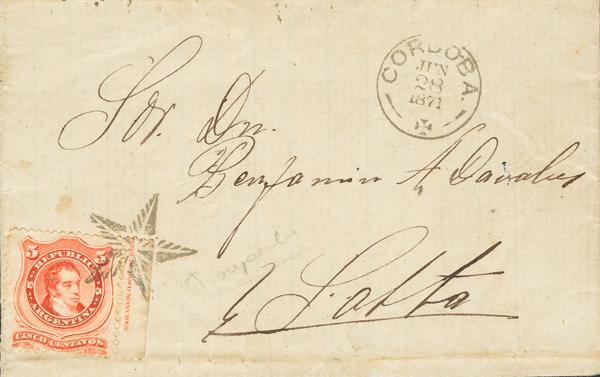 CORDOBA.
JUN
28
1871
Sor. Dn.
Benjamin A Davalos
Salta
5 REPUBLICA 5
5 5
ARGENTINA
CINCO CENTAVOS